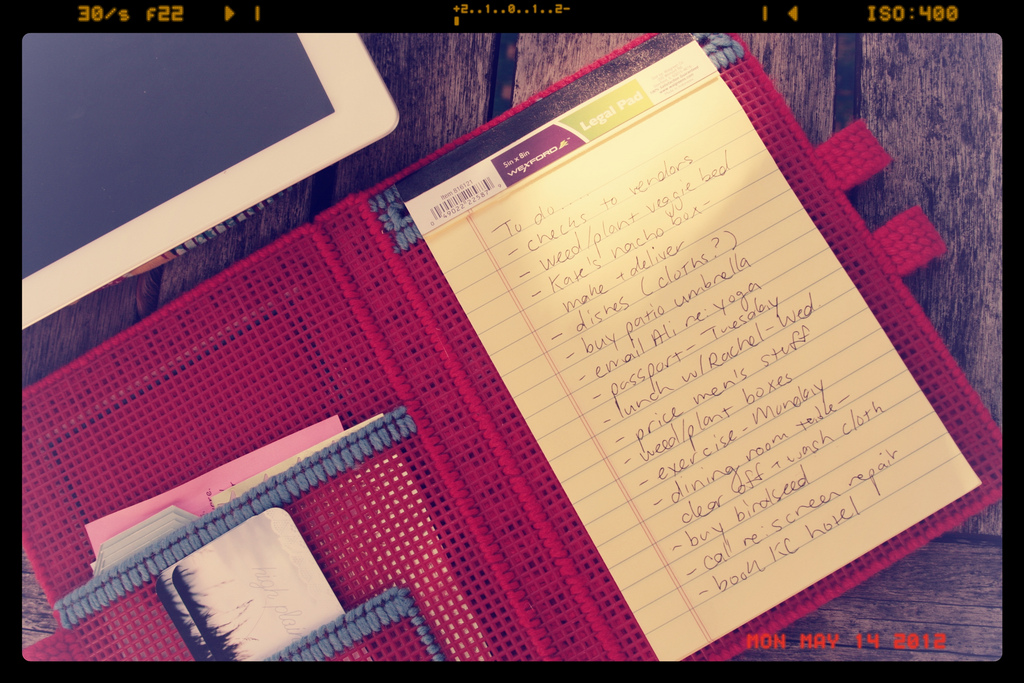 30/s f22
+2..1..0..1..2-
ISO:400
Legal Pad
5in x 8in
WEXFORD
Item 816171
0 49022 22587 9
To do...
- checks to vendors
- weed/plant veggie bed
- Kate's nacho box-
make + deliver
- dishes (cloths?)
- buy patio umbrella
- email Ali re: yoga
- passport - Tuesday
- lunch w/Rachel - Wed.
- price men's stuff
- weed/plant boxes
- exercise - Monday
- dining room table-
clear off + wash cloth
- buy birdseed
- call re: screen repair
- book KC hotel
high plains
MON MAY 14 2012